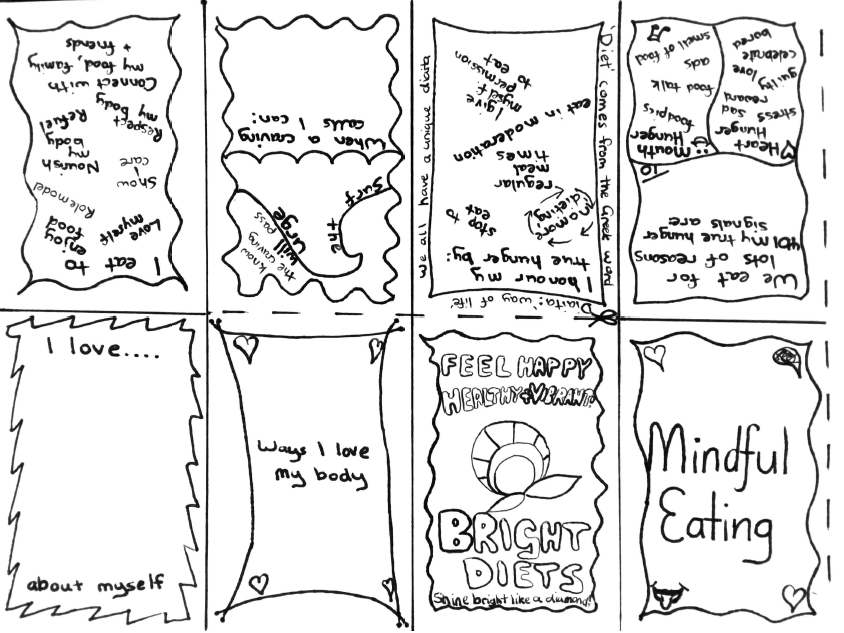 I eat to
enjoy
food
Love
myself
Role model
Show
care
Nourish
my
body
Refuel
Respect
my body
Connect with
my food, family
+ friends
Surf
the
Urge
know
the craving
will
pass
When a craving
calls I can:
We all have a unique diaita
'Diet' comes from the Greek word
Diaita: 'way of life'
I honour my
true hunger by:
no more
dieting
stop to
eat
regular
meal
times
eat in moderation
I give
myself
permission
to eat
We eat for
lots of reasons
my true hunger
signals are
10
Heart
Hunger
stress
sad
reward
guilty love
celebrate
bored
Mouth
Hunger
food pics
food talk
ads
smell of food
I love....
about myself
Ways I love
my body
FEEL HAPPY
HEALTHY + VIBRANT!
BRIGHT
DIETS
Shine bright like a diamond!
Mindful
Eating